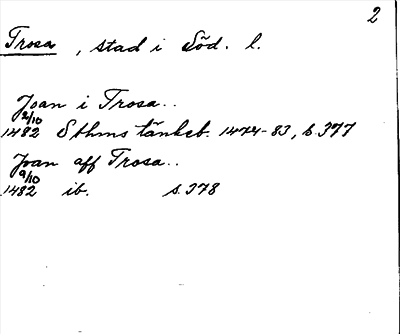 2
Trosa, stad i Söd. l.
Joan i Trosa..
2/10
1482 Sthms tänkeb. 1474-83, s. 377
Joan aff Trosa..
9/10
1482 ib. s. 378